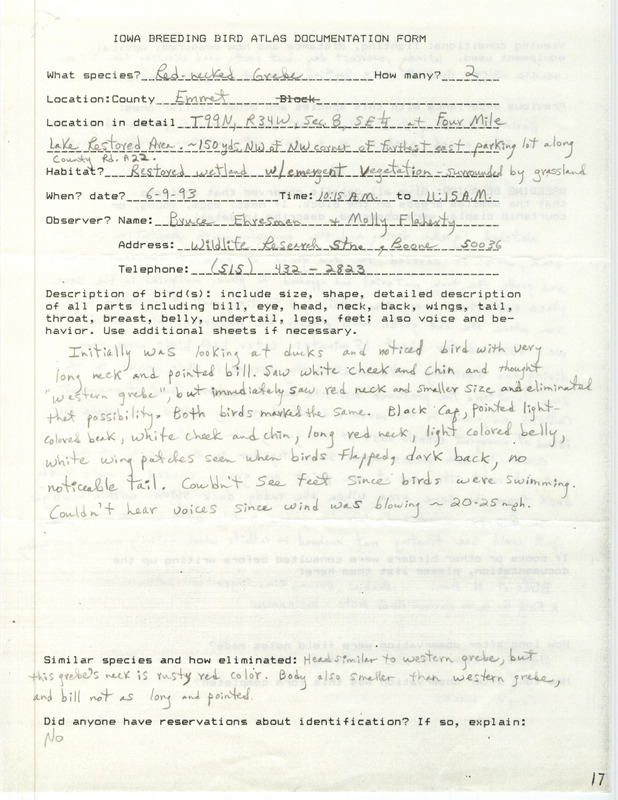 IOWA BREEDING BIRD ATLAS DOCUMENTATION FORM
What species? Red-necked Grebe How many? 2
Location: County Emmet Block
Location in detail T99N, R34W, Sec 8, SE¼ at Four Mile
Lake Restored Area. ~150 yds. NW of NW corner of furthest east parking lot along
County Rd. A22.
Habitat? Restored wetland w/emergent vegetation - surrounded by grassland
When? date? 6-9-93 Time: 10:15 A.M. to 11:15 A.M.
Observer? Name: Bruce Ehresman + Molly Flaherty
Address: Wildlife Research Stne, Boone 50036
Telephone: (515) 432-2823
Description of bird(s): include size, shape, detailed description
of all parts including bill, eye, head, neck, back, wings, tail,
throat, breast, belly, undertail, legs, feet; also voice and be-
havior. Use additional sheets if necessary.
Initially was looking at ducks and noticed bird with very
long neck and pointed bill. Saw white cheek and chin and thought
"western grebe", but immediately saw red neck and smaller size and eliminated
that possibility. Both birds marked the same. Black cap, pointed light-
colored beak, white cheek and chin, long red neck, light colored belly,
white wing patches seen when birds flapped, dark back, no
noticeable tail. Couldn't see feet since birds were swimming.
Couldn't hear voices since wind was blowing ~ 20-25 mph.
Similar species and how eliminated: Head similar to western grebe, but
this grebe's neck is rusty red color. Body also smaller than western grebe,
and bill not as long and pointed.
Did anyone have reservations about identification? If so, explain:
No
17